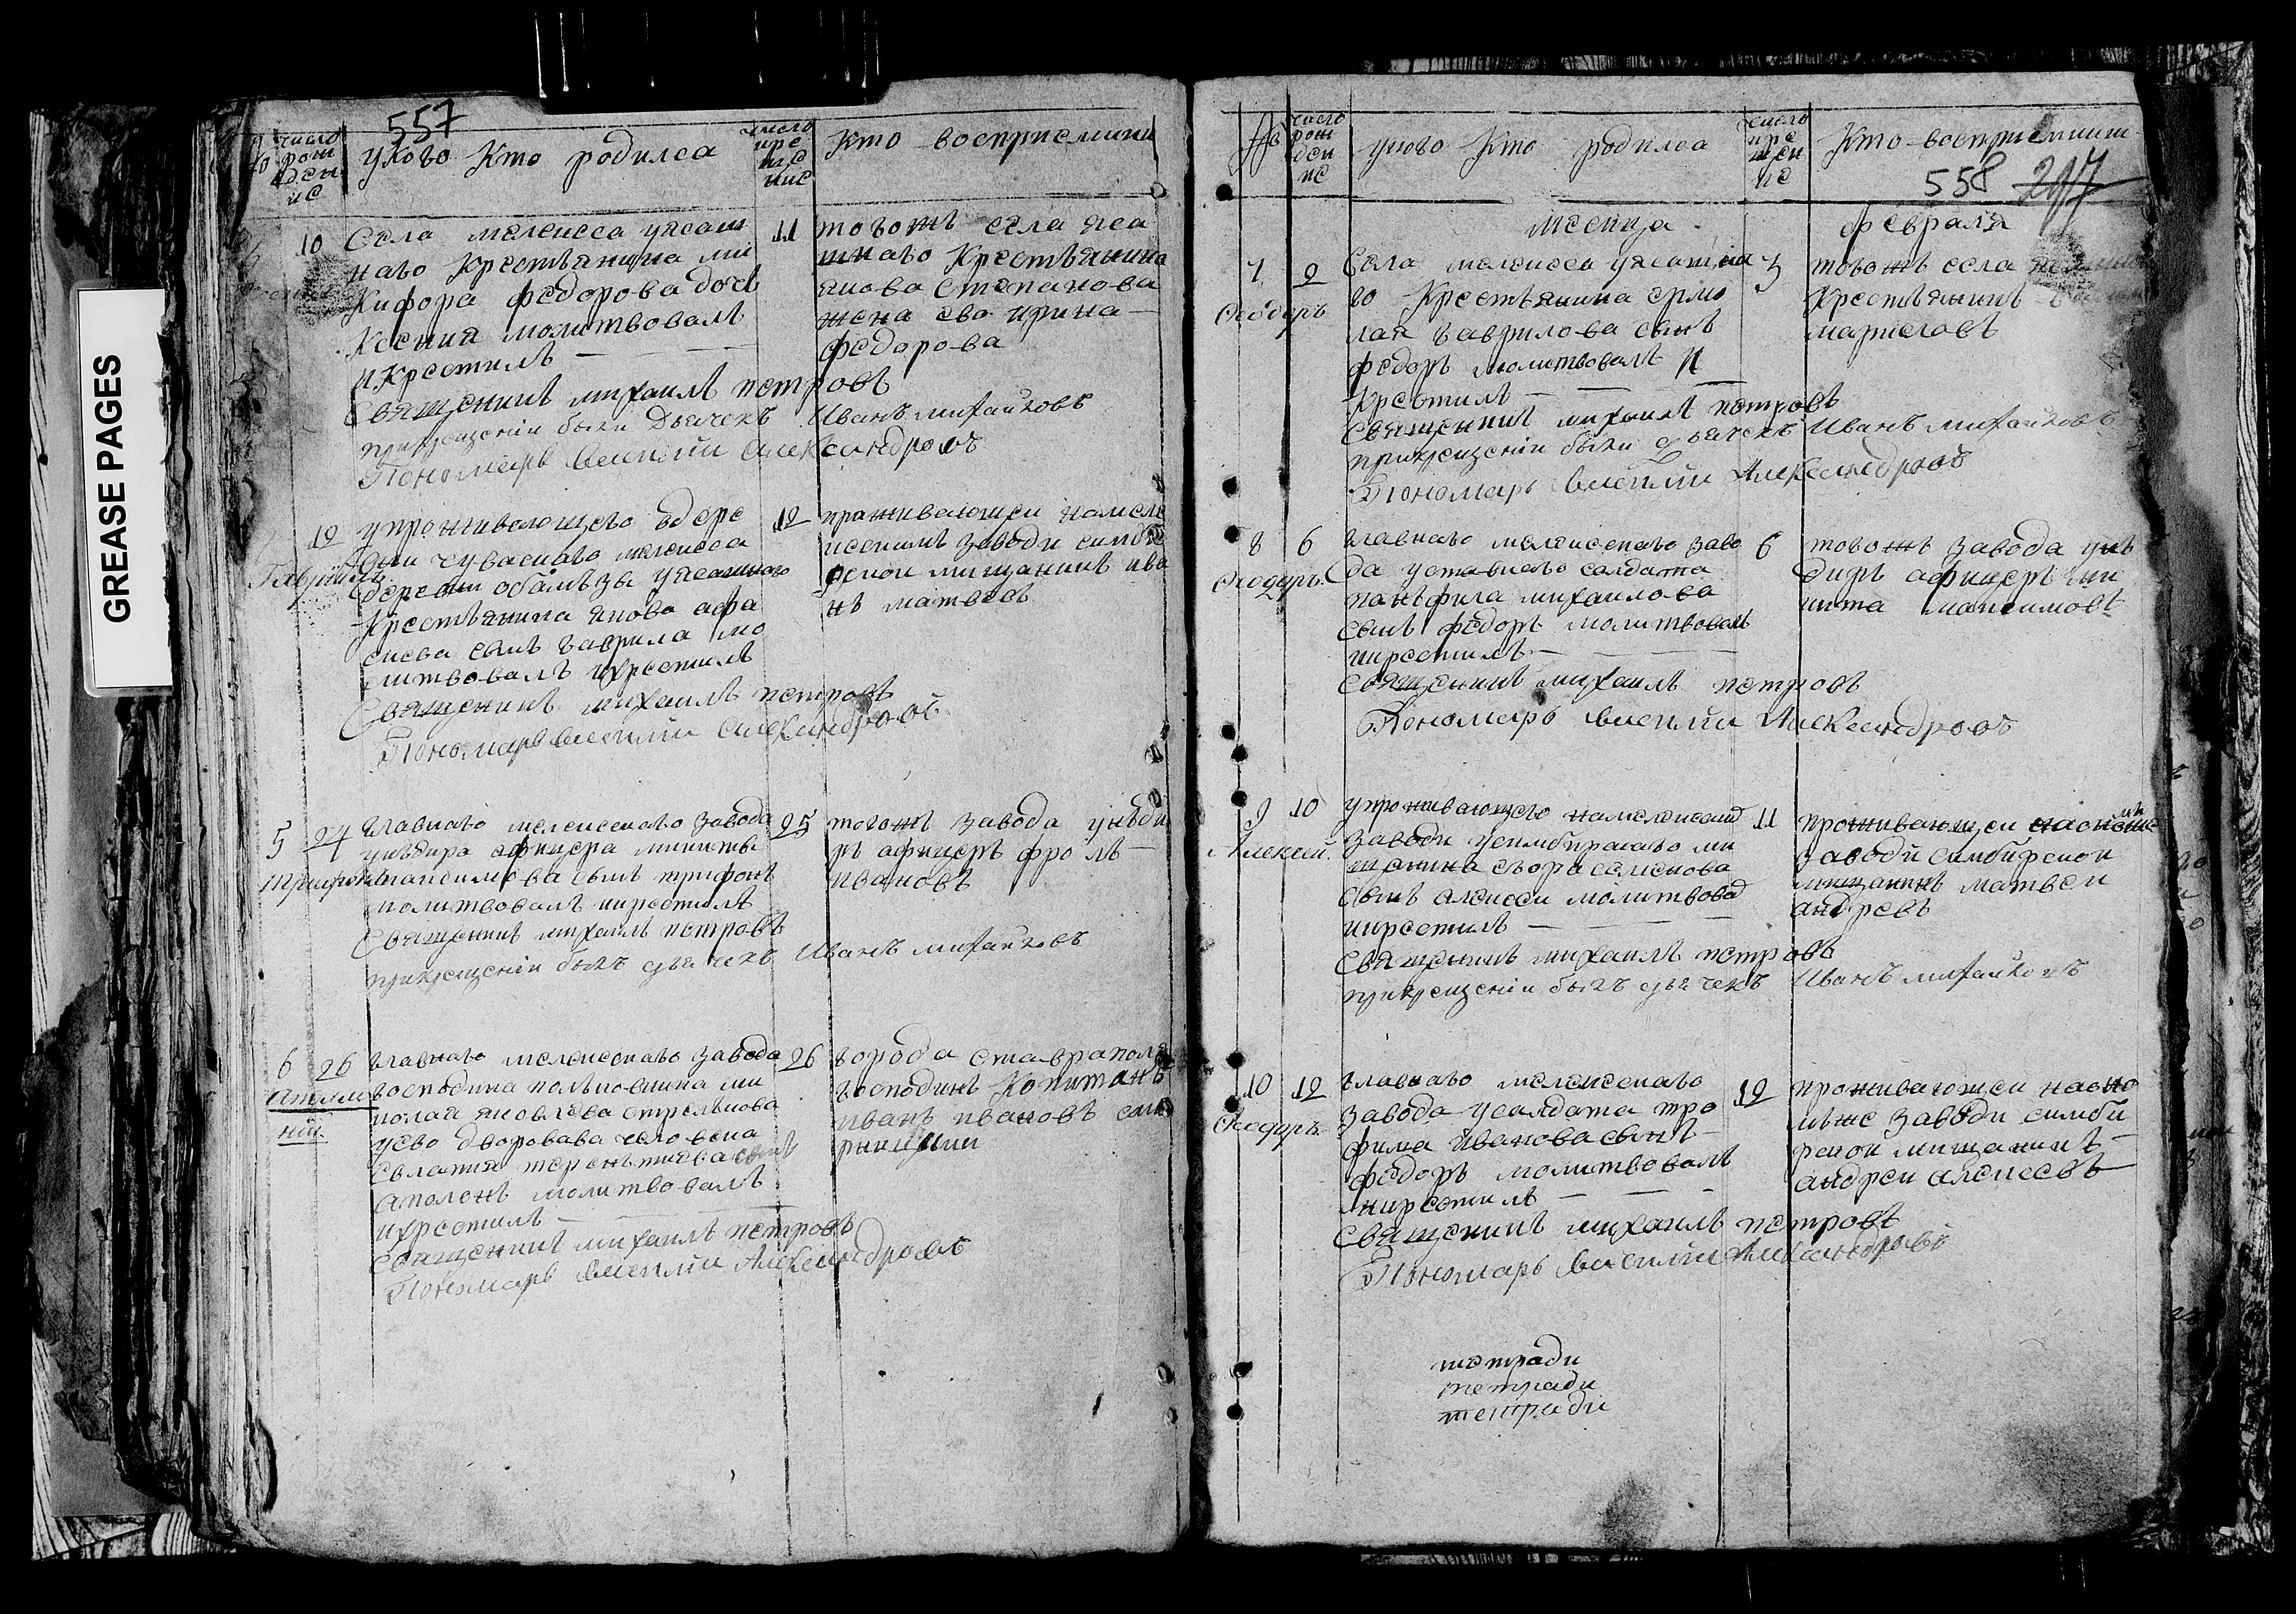 GREASE PAGES
557
№ число рожденис
уково кто родилса
число крещение
кто восприемники
10
Села мелекеса уясаш
наго Крестьянина ми
кифора федорова доч
Ксения молитвовалъ
и Крестилъ
Священикъ михаилъ петровъ
прикрещеніи были Дьячекъ Иванъ михайловъ
Пономарь василий Александровъ
11
тогожъ села яса
шнаго Крестьянина
якова степанова
жена ево ирина
федорова
Гаврiилъ
12
упроживающего вдере
вни чуваскаго мелекеса
деревни ясашнаго
Крестьянина якова афа
сиева сынъ гаврила мо
литвовалъ икрестилъ
Священикъ михаилъ петровъ
Пономарь василий Александровъ
12
праживающеи намеле
кескомъ заводи симбе
рскои мищанинъ ива
нъ матвеевъ
5
Трифонъ
24
главнаго мелекескаго завода
унъдира афицера микиты
максимова сынъ трифонъ
молитвовалъ икрестилъ
Священикъ михаилъ петровъ
прикрещеніи былъ дьячекъ Иванъ михайловъ
25
тогожъ завода унъди
ръ афицеръ фролъ
ивановъ
6
Аполло
нiй
26
главнаго мелекескаго завода
господина полковника ми
колая яковлева стрелкова
уево дворовава человека
евлатия терентиева сынъ
аполонъ молитвовалъ
икрестилъ
Священикъ михаилъ петровъ
Пономарь василий Александровъ
26
города ставраполя
господинъ Копитанъ
иванъ ивановъ
№ число рожденис
уково Кто родилса
число крещенис
Кто восприемник
558 217
месица февраля
7
Феодоръ
2
Села мелекеса уясашна
го Крестьянина ермо
лая гаврилова сынъ
федоръ молитвовалъ и
Крестилъ
Священикъ михаилъ петровъ
прикрещеніи были дьячекъ Иванъ михайловъ
Пономарь василий Александровъ
3
тогожъ села
Крестьянинъ
8
Феодоръ
6
главнаго мелекескаго заво
да уставнаго салдата
панъфила михаилова
сынъ федоръ молитвовалъ
икрестилъ
Священикъ михаилъ петровъ
Пономарь василий Александровъ
6
тогожъ завода унъ
диръ афицеръ ми
кита максимовъ
9
Алексей
10
упроживающего намелекеским
заводи усимбирскаго ми
щенина егора селенова
сынъ алексеи молитвовал
икрестилъ
Священикъ михаилъ петровъ
прикрещеніи былъ дьячекъ Иванъ михайловъ
11
проживающеи наономъ
заводи симбирскои
мищанинъ матвеи
андревъ
10
Феодоръ
12
главнаго мелекескаго
завода усалдата тро
фима иванова сынъ
федоръ молитвовалъ
икрестилъ
Священикъ михаилъ петровъ
Пономарь василий Александровъ
12
проживающеи наоно
мъже заводи симби
рскои мищанинъ
андреи алексеевъ
тетради
тетради
тетради